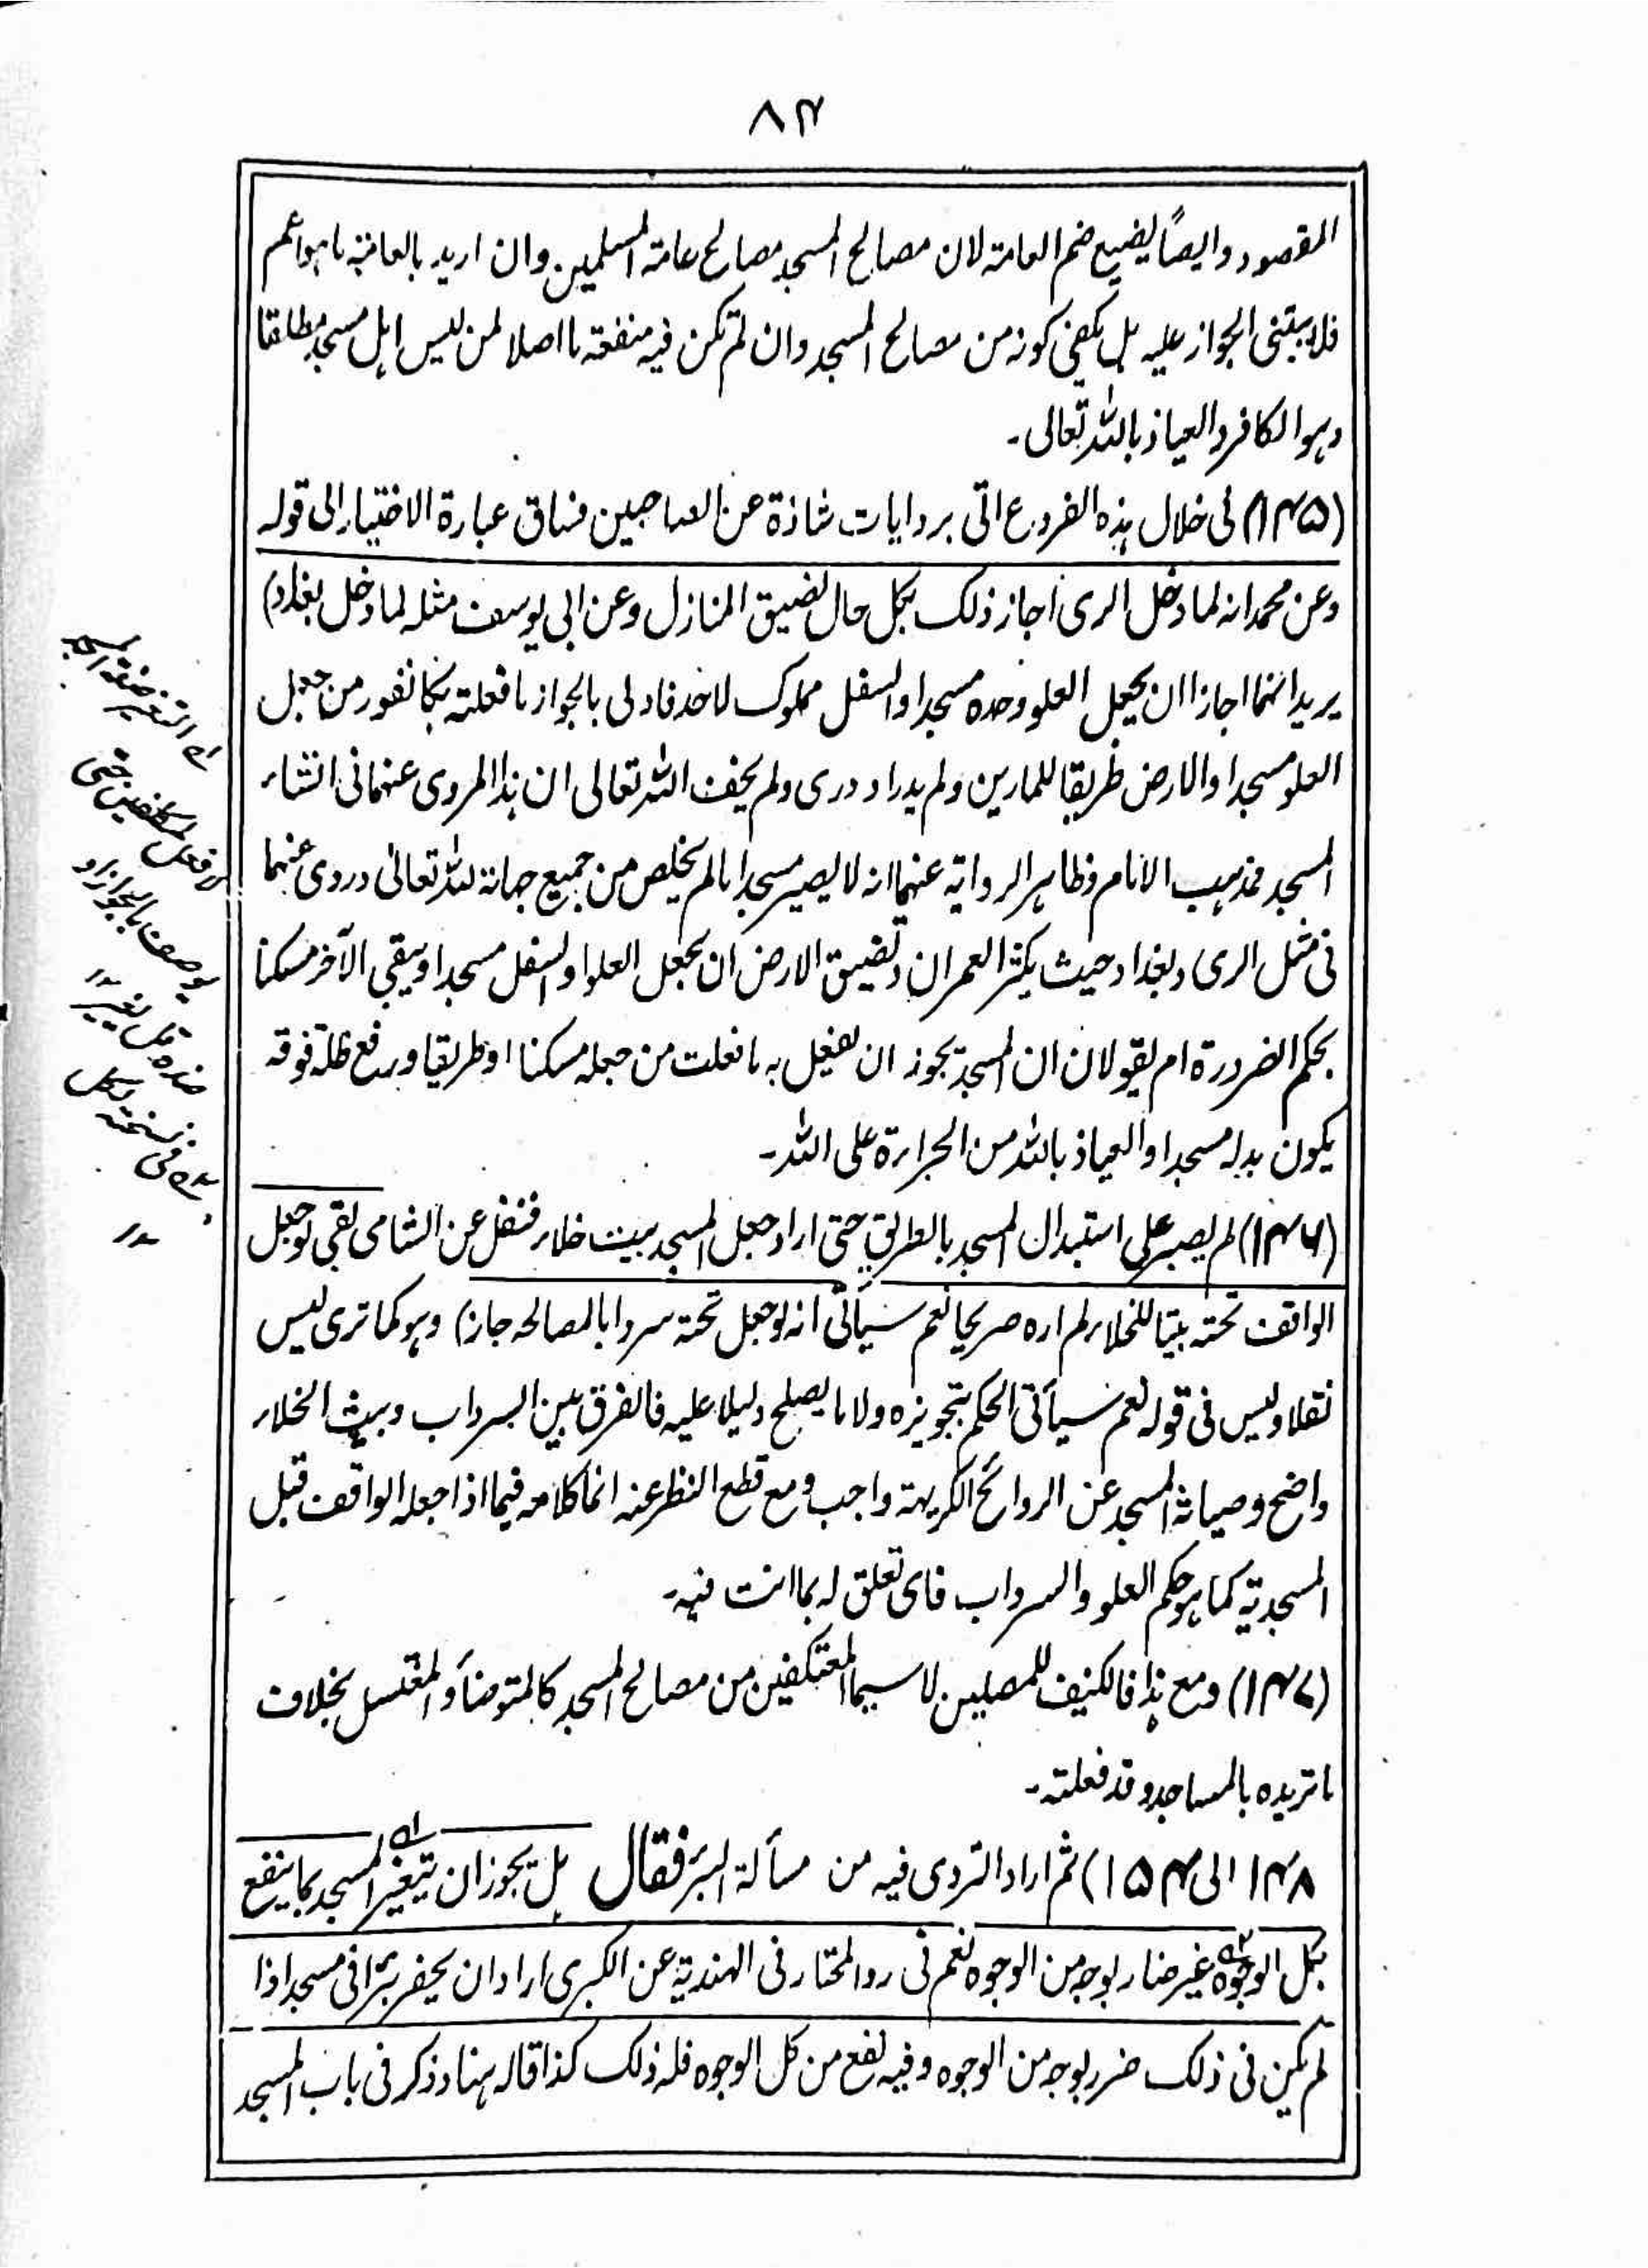 ۸۴
المقصود وايضاً يضيع ضم العامة لان مصالح المسجد مصالح عامة المسلمين وان اريد بالعامة ما هو اعم
فلا يبتنى الجواز عليه بل يكفى كونه من مصالح المسجد وان لم تكن فيه منفعة ما اصلا لمن ليس اهل مسجد مطلقا
وهو الكافر والعياذ بالله تعالى۔
(۱۴۵) فى خلال هذه الفروع اتى بروايات شاذة عن الصاحبين فساق عبارة الاختيار الى قوله
وعن محمد انه لما دخل الرى اجاز ذلك بكل حال لضيق المنازل وعن ابى يوسف مثله لما دخل بغداد)
يريد انهما اجازا ان يجعل العلو وحده مسجدا والسفل مملوك لاحد فاولى بالجواز ما فعلته بكانفور من جعل
العلو مسجدا والارض طريقا للمارين ولم يدر او درى ولم يخف الله تعالى ان هذا المروى عنهما فى انشاء
المسجد فمذهب الامام وظاهر الرواية عنهما انه لا يصير مسجدا ما لم يخلص من جميع جهاته لله تعالى وروى عنهما
فى مثل الرى وبغداد حيث يكثر العمران وتضيق الارض ان يجعل العلو او السفل مسجدا ويبقى الآخر مسكنا
بحكم الضرورة ام يقولان ان المسجد يجوز ان يفعل به ما فعلت من جعله مسكنا او طريقا ورفع ظلة فوقه
يكون بدله مسجدا والعياذ بالله من الجرارة على الله۔
(۱۴۶) لم يصبر على استبدال المسجد بالطريق حتى اراد جعل المسجد بيت خلاء فنقل عن الشامى بقى لو جعل
الواقف تحته بيتا للخلاء لم اره صريحا نعم سيأتى انه لو جعل تحته سردابا لمصالحه جاز) وهو كما ترى ليس
نقلا وليس فى قوله نعم سيأتى الحكم بتجويزه ولا ما يصلح دليلا عليه فالفرق بين السرداب وبيت الخلاء
واضح وصيانة المسجد عن الروائح الكريهة واجب ومع قطع النظر عنه انما كلامه فيما اذا جعله الواقف قبل
المسجدية كما هو حكم العلو والسرداب فاى تعلق له بما انت فيه۔
(۱۴۷) ومع هذا فالكنيف للمصلين لا سيما المعتكفين من مصالح المسجد كالمتوضأ والمغتسل بخلاف
ما تريده بالمساجد وقد فعلته۔
۱۴۸ الى ۱۵۴) ثم اراد التردى فيه من مسألة البئر فقال بل يجوز ان يتغير المسجد بما ينفع
بكل الوجوه غير ضار بوجه من الوجوه نعم فى رد المحتار فى الهندية عن الكبرى اراد ان يحفر بئرا فى مسجد اذا
لم يكن فى ذلك ضرر بوجه من الوجوه وفيه نفع من كل الوجوه فله ذلك كذا قاله هنا وذكر فى باب المسجد